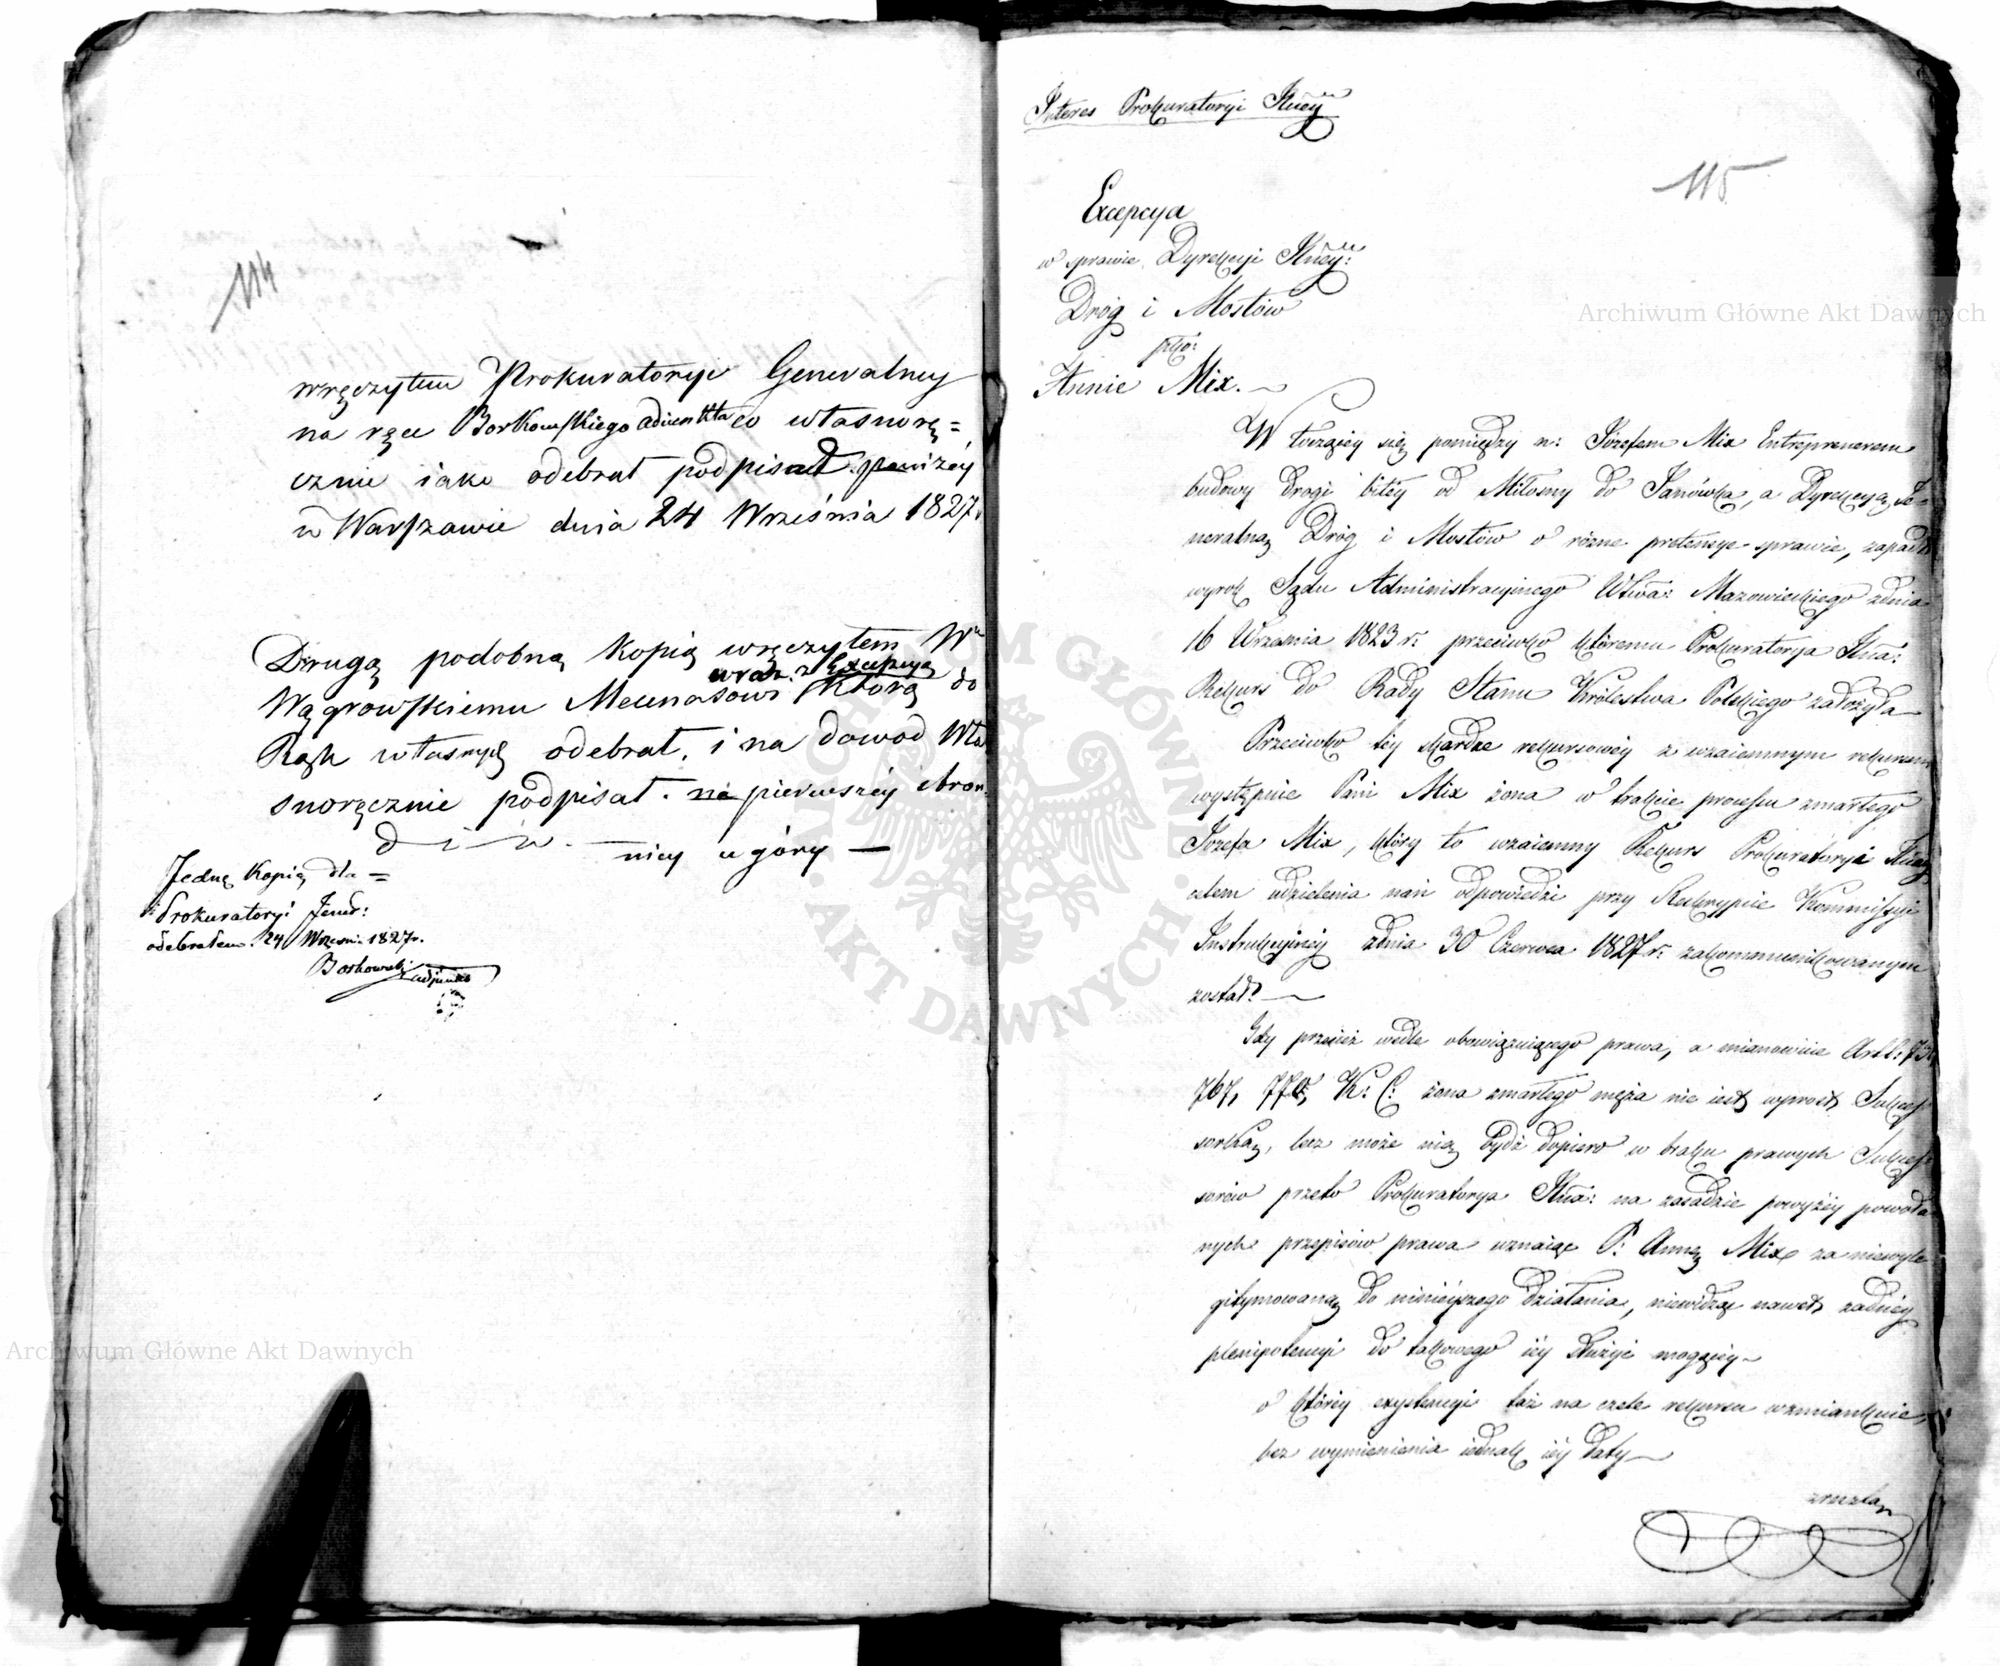 114
wręczyłem Prokuratoryi Generalney
na ręce Borkowskiego adiunkta co własnorę=
cznie iako odebrał podpisał powiżéy
w Warszawie dnia 24 Września 1827.
Drugą podobną kopią wręczyłem Wu
wraz z Excepcyą
Wągrowskiemu Mecenasowi którą do
Rąk własnych odebrał, i na dowod Wła
snoręcznie podpisał. na pierwszéy stron
d i w. nicy u góry —
Jednę Kopią dla =
Prokuratoryi Jener:
odebrałem. 24 Wrześni 1827r.
Borkowski adjunkt
Interes Prokuratoryi
115
Excepcya
w sprawie Dyrekcyi
Dróg i Mostów
pko:
Annie Mix.
W toczącéy się pomiędzy n: Józefem Mix Entreprenerem
budowy drogi bitéy od Miłosny do Janówka, a Dyrekcyą Je-
neralną Dróg i Mostów o różne pretensye sprawie, zapadł
wyrok Sądu Administracyinego Wtwa: Mazowieckiego zdnia
16 Września 1823 r: przeciwko któremu Prokuratorya
Rekurs do Rady Stanu Królestwa Polskiego założyła
Przeciwko téy skardze rekursowéy z wzaiemnym rekursem
wystąpiła Pani Mix żona w trakcie processu zmarłego
Józefa Mix, który to wzaiemny Rekurs Prokuratoryi
celem udzielenia nań odpowiedzi przy Reskrypcie Kommissyi
Instrukcyinéy zdnia 30 Czerwca 1827 r: zakommunikowanym
został.
Gdy przecież wedle obowiązuiącego prawa, a mianowicie Artt:
767, 770, K: C: żona zmarłego męża nie iest wprost Sukces
sorką, lecz może nią bydź dopiero w braku prawych Sukces
sorów przeto Prokuratorya na zasadzie powyżéy powoła
nych przepisów prawa uznaiąc P: Annę Mix za niewyle
gitymowaną do ninieyszego działania, niewidząc nawet żadnéy
plenipotencyi do takowego iéy służyć mogącéy
o któréy exystencyi też na czele rekursu wzmiankuie,
bez wymienienia iednak iéy daty
zresztą
Archiwum Główne Akt Dawnych
Archiwum Główne Akt Dawnych
ARCHIWUM GŁÓWNE AKT DAWNYCH